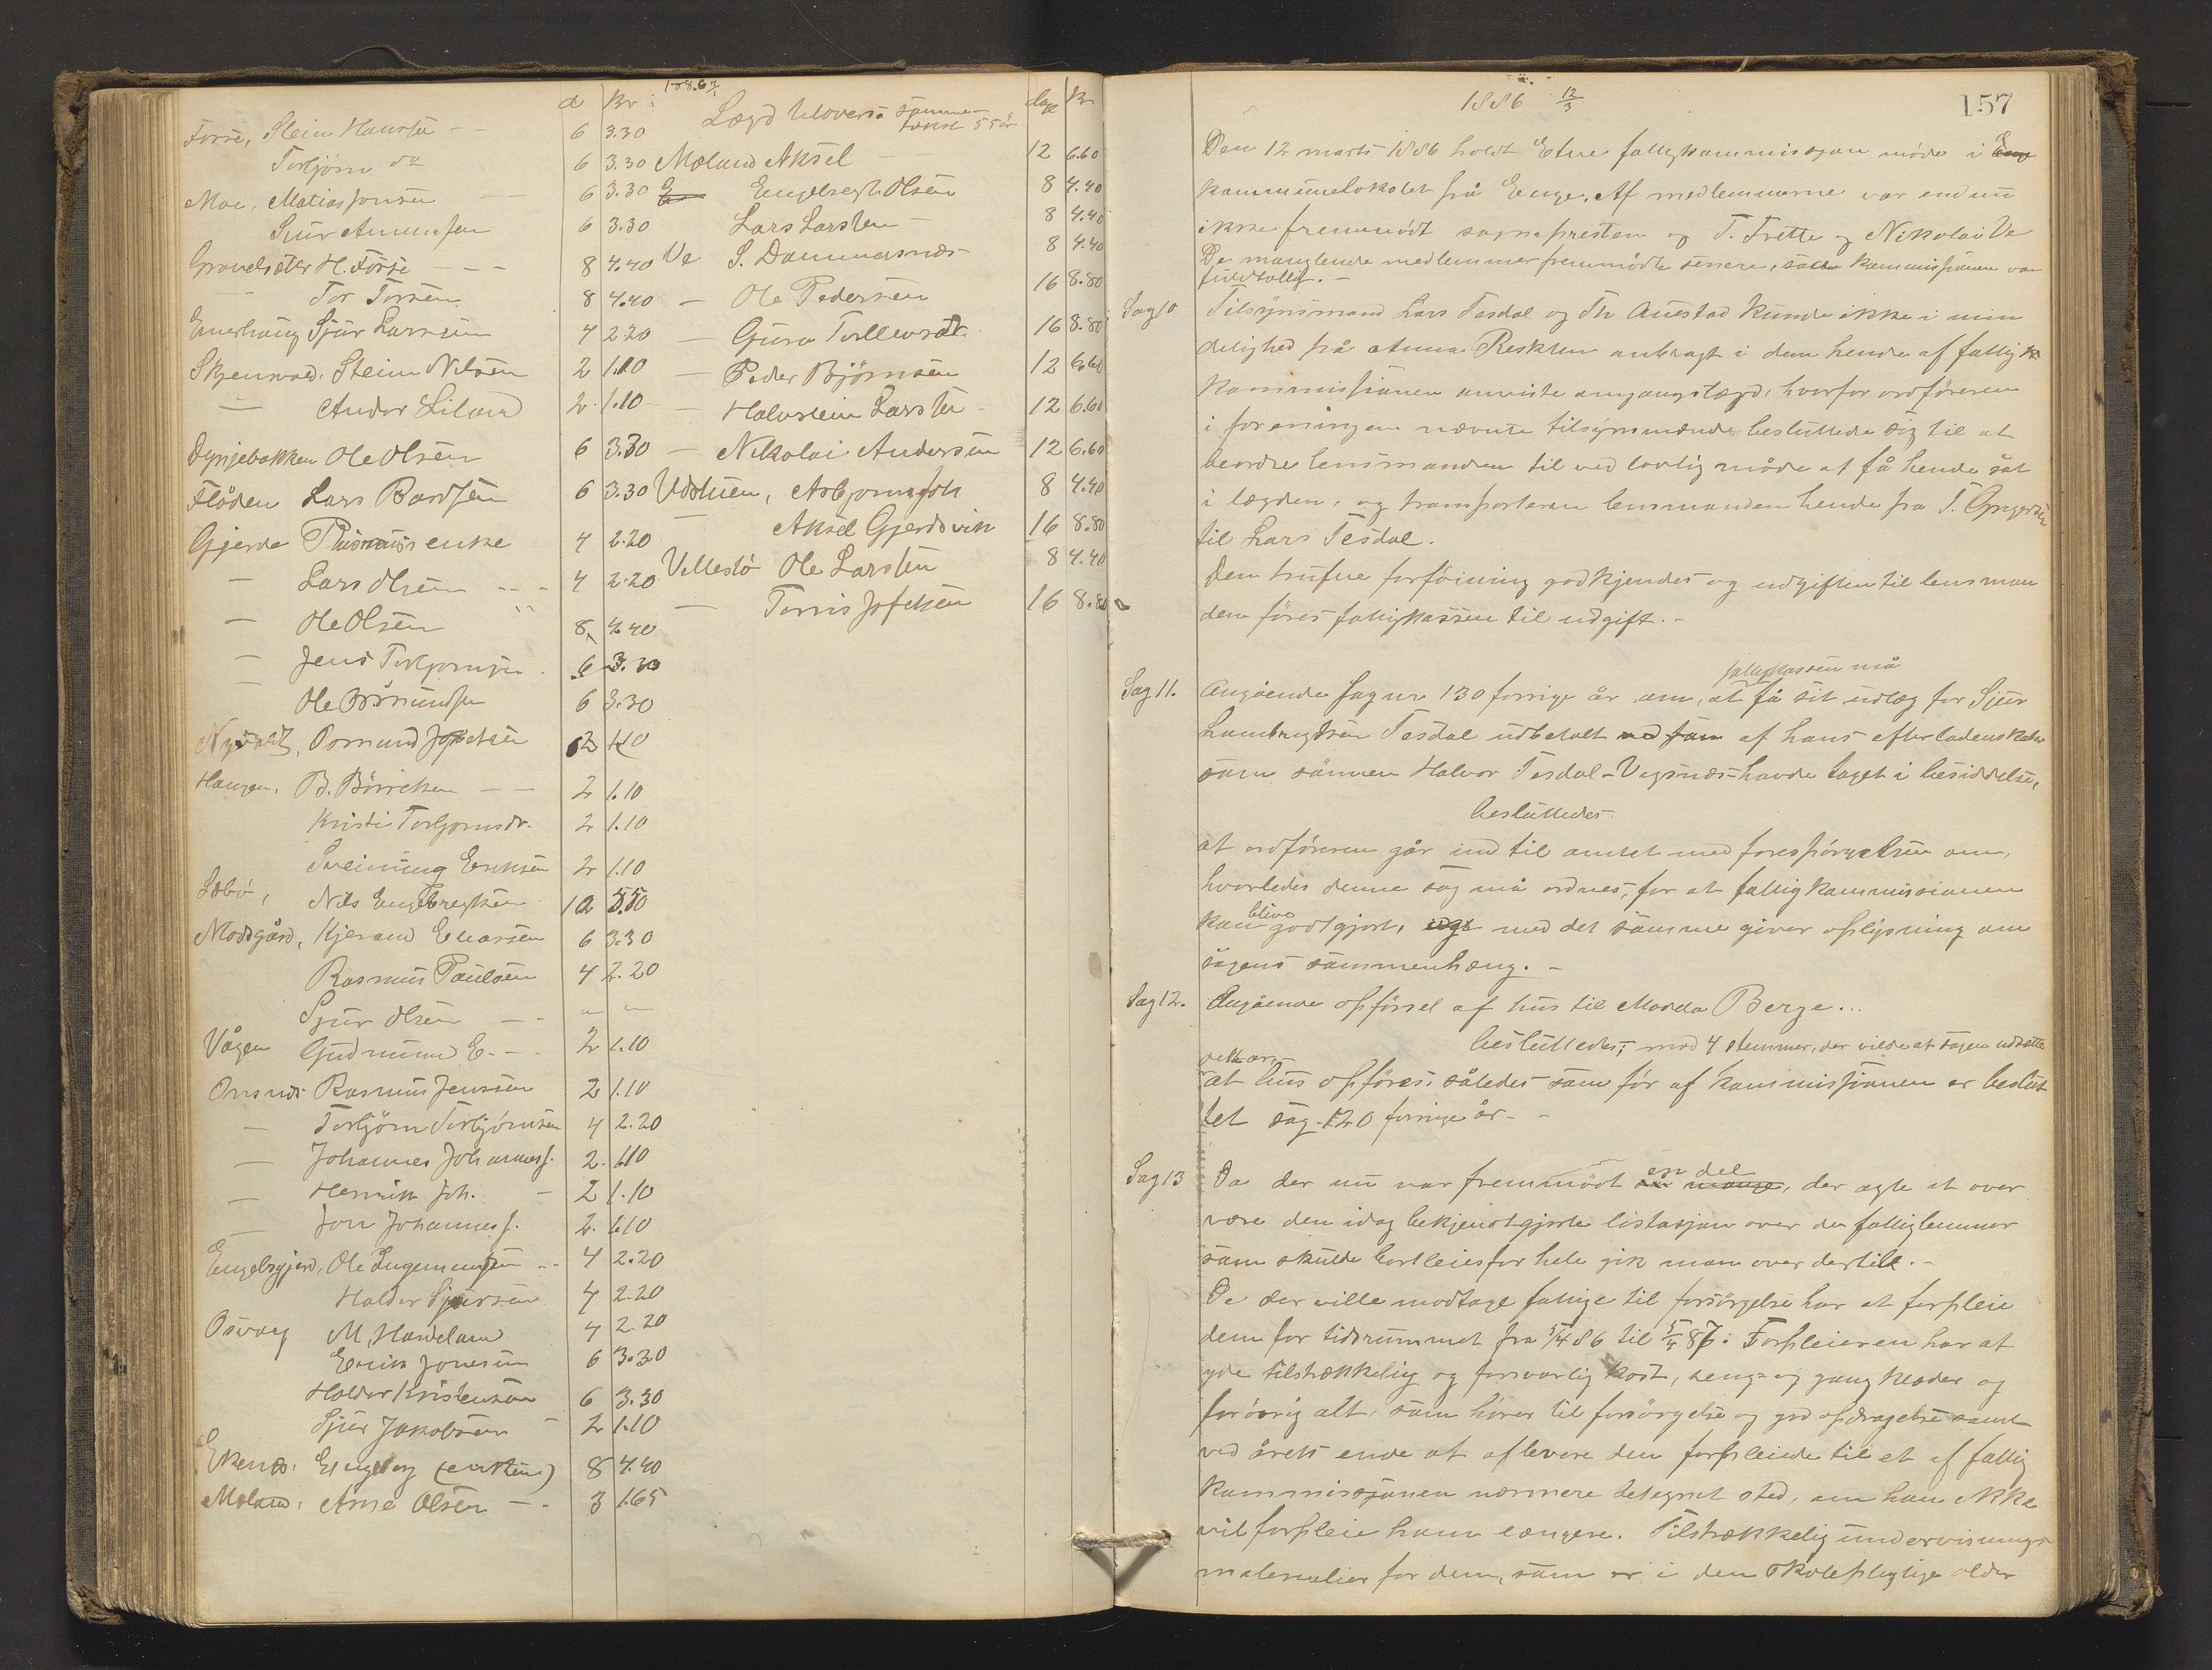 1886 7/1
d Kr:
Forse, Stein Hansen 6 3.30
Torbjörn do 6 3.30
Moe, Matias Jonsen 6 3.30
Sjur Amundsen 6 3.30
H. Forse 8 4.40
Tor Torsen 8 4.40
Sjur Larsen 4 2.20
Stein Nilsen 2 1.10
— Andor Liland 2 1.10
Ole Olsen 6 3.30
Flöden Lars Bardsen 6 3.30
Gjerde Rasmus's enke 4 2.20
— Lars Olsen 4 2.20
— Ole Olsen 8 4.40
— Jens Torbjornsen 6 3.30
— Ole Osmundsen 6 3.30
Osmund 2 1.10
Haugen, B. Börretsen 2 1.10
Kristi Torbjornsdr. 2 1.10
Sveinung Eriksen 2 1.10
Sæbö, Nils Engebregtsen 10 5.50
Modsgård, Kjerand Eliassen 6 3.30
Rasmus Paulsen 4 2.20
Sjur Olsen — " "
Vågen Gudmund E. 2 1.10
Rasmus Jensen 2 1.10
— Torbjörn Torbjörnsen 4 2.20
— Johannes Johanness. 2. 1.10
— Henrik Joh. 2 1.10
— Jon Johanness. 2. 1.10
Engelsgjerd, Ole Ingemundsen 4 2.20
Haldor Sjursen 4 2.20
Osvag M. Hardeland 4 2.20
Erik Jonesen 6 3.30
Haldor Kristensen 6 3.30
Sjur Jakobsen 2 1.10
Ekenes, Engeborg (enken) 8 4.40
Moland, Arne Olsen 3 1.65
Lægd samme takst 55 ör
dage Kr
Moland Aksel 12 6.60
Engebregt Olsen 8 4.40
Lars Larsen 8 4.40
Ve S. Dommersnes 8 4.40
— Ole Pedersen 16 8.80
— Guro Tollevsdr. 16 8.80
— Peder Bjørnsen 12 6.60
— Halvstein Larsen 12 6.60
— Nikolai Andersen 12 6.60
Asbjorn 8 4.40
— Aksel Gjerdsvik 16 8.80
Ole Larsen 8 4.40
— Tønnis 16 8.80
1886 12/3
157
Den 12 marts 1886 holdt Etne fattigkommissjon møde i Eng
kommunelokalet på Enge. Af medlemmerne var endnu
ikke fremmödt sognepresten og T. Frette og Nikolai Ve
De manglende medlemmer fremmödte senere, så at kommissionen var
fuldtallig. –
Sag 10 Tilsynsmand Lars Tesdal og Th Austad kunde ikke i min
delighed få Anna Reskten anbragt i den hende af fattig
kommissionen anviste omgangslægd, hvorfor ordföreren
i forening nævnte tilsynsmænd besluttede sig til at
beordre lensmanden til ved lovlig måde at få hende sat
i lægden, og transporterer lensmanden hende fra T. Grygerdu
til Lars Tesdal.
Den trufne forföining godkjendes og udgiften til lensman
den föres fattigkassen til udgift. –
Sag 11. Angående sag nr 130 forrige år om, at fattigkassen må få sit udlæg for Sjur
Lambregtsen Tesdal udbetalt af hans efterladenskaber
som sönnen Halvor Tesdal-Vegsnes havde taget i besiddelse,
besluttedes
at ordföreren går ind til amtet med forespörgelsen om,
hvorledes denne sag må ordnes, for at fattigkommissionen
kan blive godtgjort, med det samme giver oplysning om
sagens sammenhæng. –
Sag 12. Angående opförsel af hus til Marda Berge...
besluttedes, mod 4 stemmer, der vilde at sagen udsættes
dette år –
at hus opföres således som för af kommissionen er beslut
tet sag 120 forrige år –
Sag 13 Da der nu var fremmödt så mange en del, der agte at over
være den idag bekjendtgjorte listasjon over de fattiglemmer
som skulde bortleies for hele gik man over dertil. –
De der ville modtage fattige til forsörgelse har at forpleie
dem for tidsrummet fra 5/4 86 til 5/4 87: Forpleieren har at
yde tilstrækkelig og forsvarlig kost, seng- og gangklæder og
forövrig alt, som hörer til forsörgelse og god opdragelse samt
ved årets ende at aflevere den forpleiede til et af fattig
kommissjonen nærmere betegnet sted, om han ikke
vil forpleie ham længere. Tilstrækkelig undervisnings
materialier for dem, som er i den skolepligtige alder